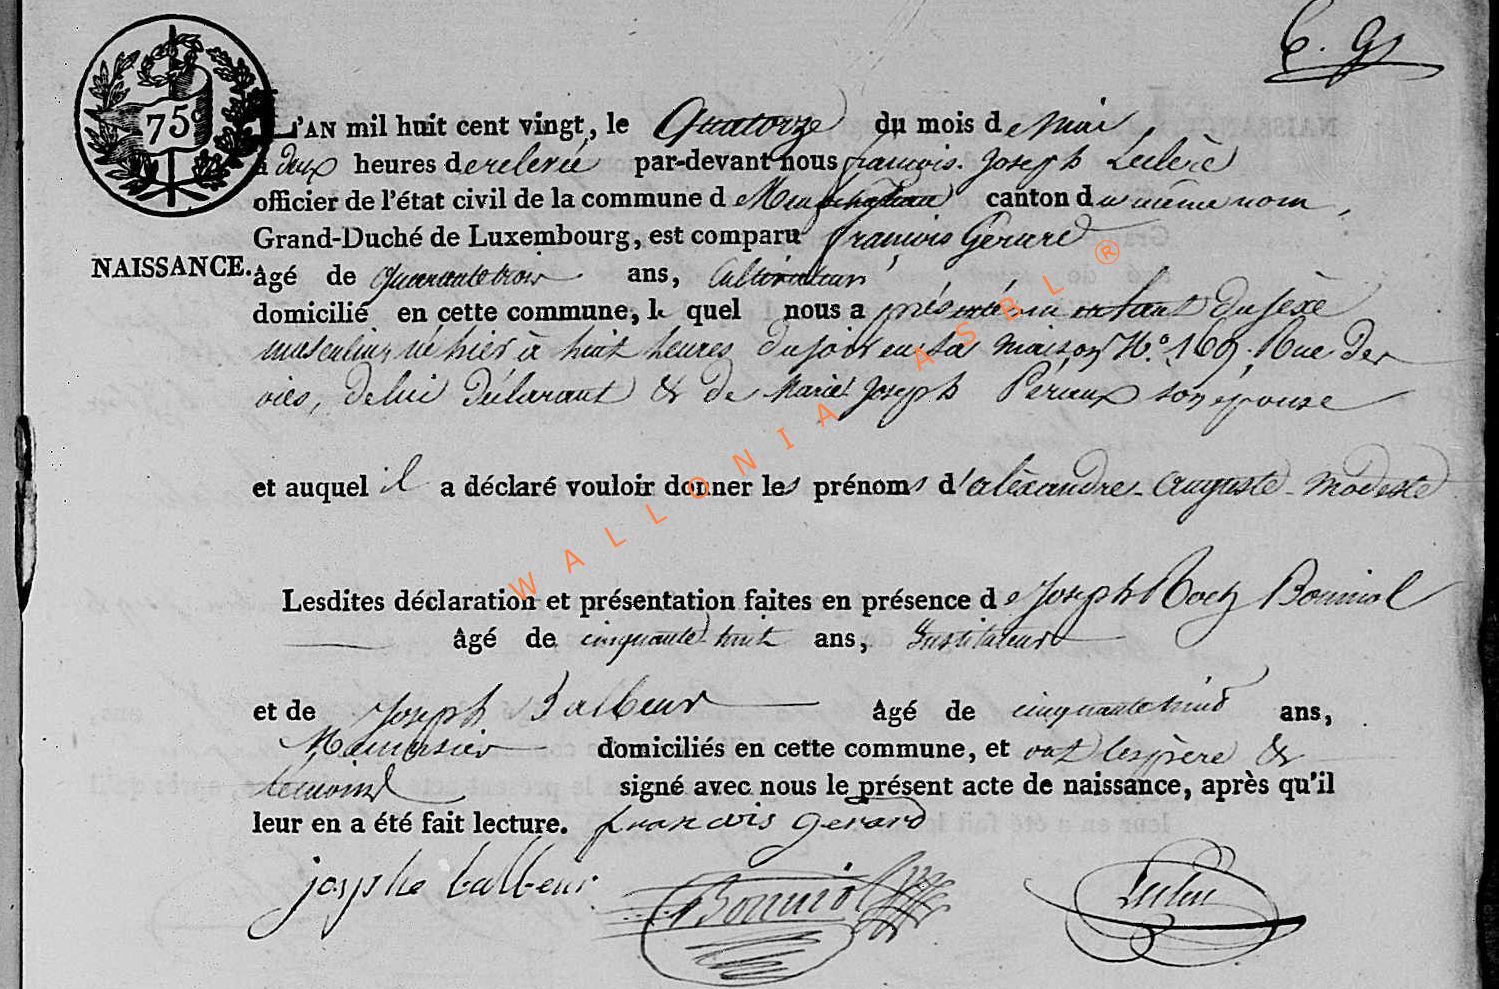 C. G.
75c
L'AN mil huit cent vingt, le Quatorze du mois de Mai
à deux heures de relevée par-devant nous françois. Joseph Leclerc
officier de l'état civil de la commune de Neufchateau canton du même nom,
Grand-Duché de Luxembourg, est comparu françois Gérard
NAISSANCE.
âgé de quarante trois ans, Cultivateur
domicilié en cette commune, le quel nous a présenté un enfant du sexe
masculin, né hier à huit heures du soir en sa maison N.o 169. Rue
de lui déclarant & de Marie Joseph son épouse
et auquel il a déclaré vouloir donner les prénoms d'alèxandre - Auguste - Modeste
Lesdites déclaration et présentation faites en présence de Joseph Roch Bonniol
âgé de cinquante huit ans, Instituteur
et de Joseph Balbeur âgé de cinquante ans,
domiciliés en cette commune, et ont les père &
témoins signé avec nous le présent acte de naissance, après qu'il
leur en a été fait lecture. francois gerard
balbeur
Bonniol
Leclerc
WALLONIA ASBL ®